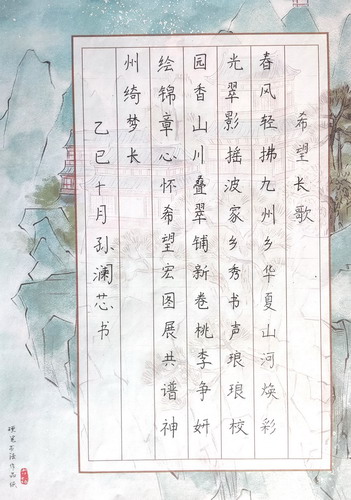 希望长歌
春风轻拂九州乡华夏山河焕彩
光翠影摇波家乡秀书声琅琅校
园香山川叠翠铺新卷桃李争妍
绘锦章心怀希望宏图展共谱神
州绮梦长
乙巳十月孙澜芯书
硬笔书法作品纸